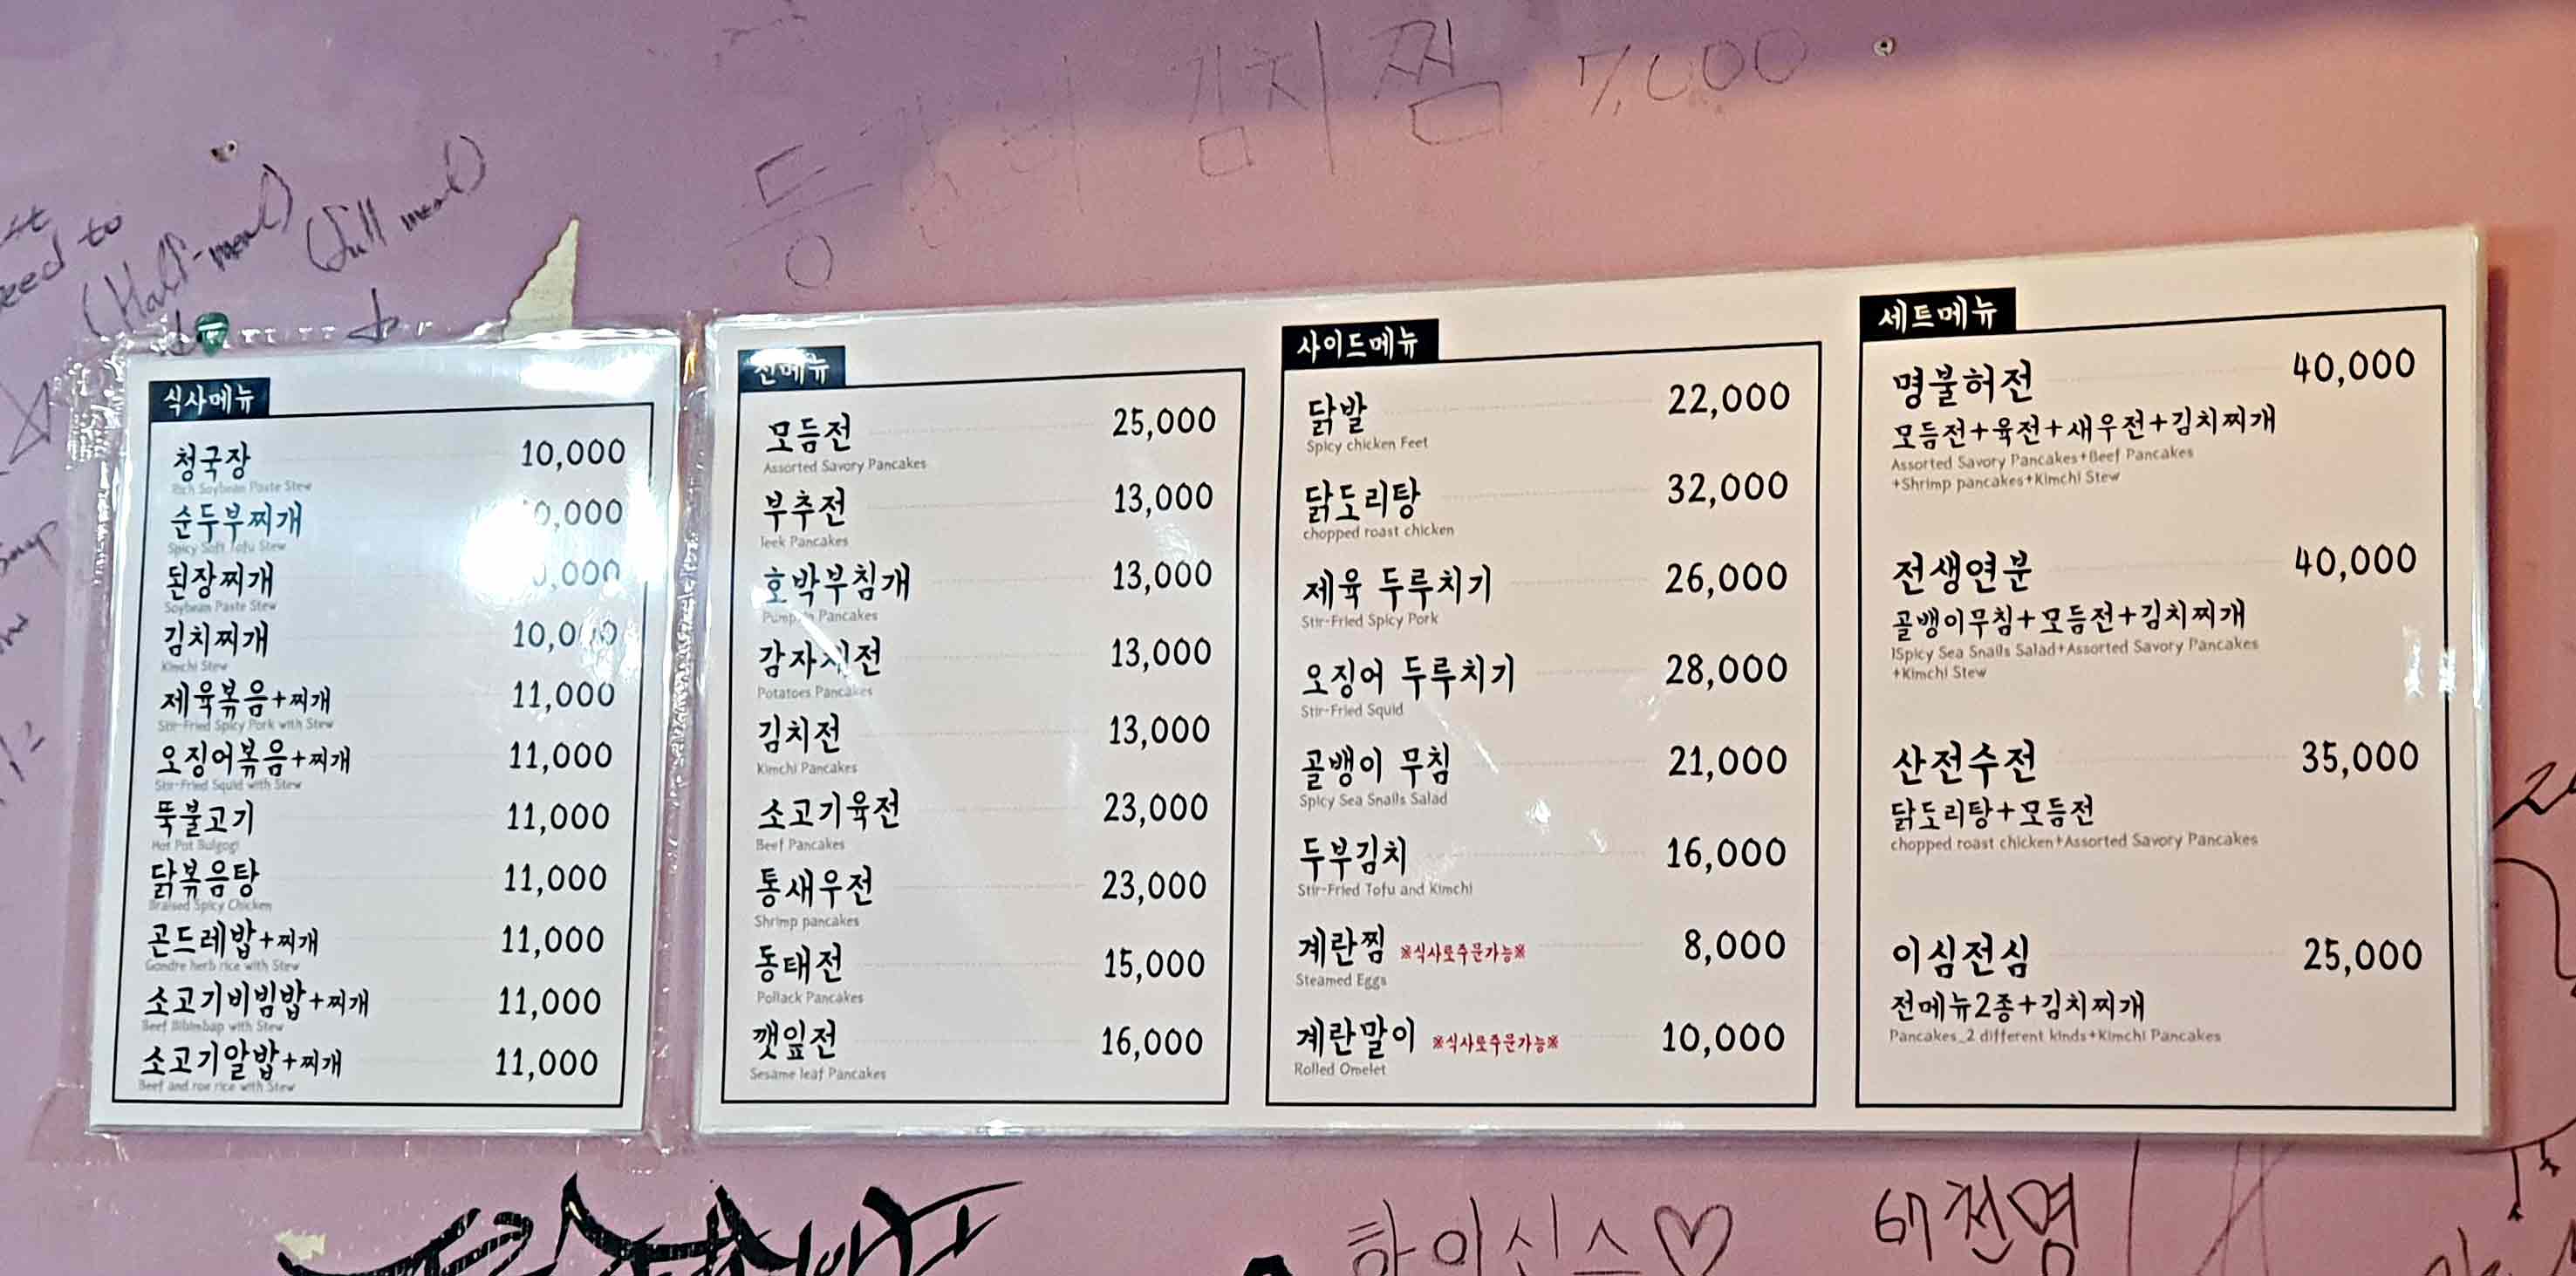 김치찜 7,000
(Half-meal)
(full meal)
식사메뉴
청국장 10,000
Rich Soybean Paste Stew
순두부찌개 0,000
Spicy Soft Tofu Stew
된장찌개 ,000
Soybean Paste Stew
김치찌개 10,000
Kimchi Stew
제육볶음+찌개 11,000
Stir-Fried Spicy Pork with Stew
오징어볶음+찌개 11,000
Stir-Fried Squid with Stew
뚝불고기 11,000
Hot Pot Bulgogi
닭볶음탕 11,000
Braised Spicy Chicken
곤드레밥+찌개 11,000
Gondre herb rice with Stew
소고기비빔밥+찌개 11,000
Beef Bibimbap with Stew
소고기알밥+찌개 11,000
Beef and roe rice with Stew
전메뉴
모듬전 25,000
Assorted Savory Pancakes
부추전 13,000
leek Pancakes
호박부침개 13,000
Pumpkin Pancakes
감자채전 13,000
Potatoes Pancakes
김치전 13,000
Kimchi Pancakes
소고기육전 23,000
Beef Pancakes
통새우전 23,000
Shrimp pancakes
동태전 15,000
Pollack Pancakes
깻잎전 16,000
Sesame leaf Pancakes
사이드메뉴
닭발 22,000
Spicy chicken Feet
닭도리탕 32,000
chopped roast chicken
제육 두루치기 26,000
Stir-Fried Spicy Pork
오징어 두루치기 28,000
Stir-Fried Squid
골뱅이 무침 21,000
Spicy Sea Snails Salad
두부김치 16,000
Stir-Fried Tofu and Kimchi
계란찜 ※식사로주문가능※ 8,000
Steamed Eggs
계란말이 ※식사로주문가능※ 10,000
Rolled Omelet
세트메뉴
명불허전 40,000
모듬전+육전+새우전+김치찌개
Assorted Savory Pancakes+Beef Pancakes
+Shrimp pancakes+Kimchi Stew
전생연분 40,000
골뱅이무침+모듬전+김치찌개
1Spicy Sea Snails Salad+Assorted Savory Pancakes
+Kimchi Stew
산전수전 35,000
닭도리탕+모듬전
chopped roast chicken+Assorted Savory Pancakes
이심전심 25,000
전메뉴2종+김치찌개
Pancakes_2 different kinds+Kimchi Pancakes
하이신스♡
67천명